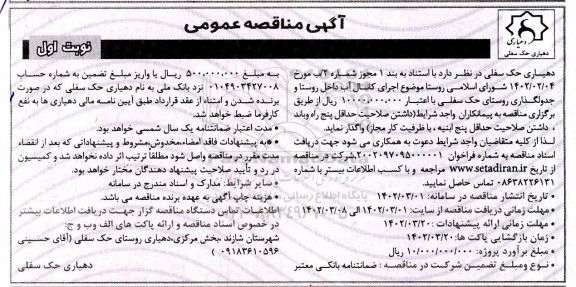 آگهی مناقصه عمومی
نوبت اول
دهیاری
دهیاری حک سفلی
دهیاری حک سفلی در نظر دارد با استناد به بند ۱ مجوز شماره ۲/ب مورخ
۱۴۰۲/۰۲/۰۴ شورای اسلامی روستا موضوع اجرای کانال آب داخل روستا و
جدولگذاری روستای حک سفلی با اعتبار ۱۰۰۰۰۰۰۰۰۰۰ ریال از طریق
برگزاری مناقصه به پیمانکاران واجد شرایط(داشتن صلاحیت حداقل پنج راه وباند
، داشتن صلاحیت حداقل پنج ابنیه ، با ظرفیت کار مجاز) واگذار نماید.
لذا از کلیه متقاضیان واجد شرایط دعوت به همکاری می شود جهت دریافت
اسناد مناقصه به شماره فراخوان ۲۰۰۲۰۹۷۰۹۵۰۰۰۰۰۱ شرکت در مناقصه
از تاریخ www.setadiran.ir مراجعه و یا کسب اطلاعات بیستر با شماره
۰۸۶۳۸۲۲۶۱۳۱ تماس حاصل نمایید.
• تاریخ انتشار مناقصه در سامانه: ۱۴۰۲/۰۳/۰۱
• مهلت زمانی دریافت مناقصه از سایت: ۱۴۰۲/۰۳/۰۱ الی ۱۴۰۲/۰۳/۰۸
• مهلت زمانی ارائه پیشنهادات : ۱۴۰۲/۰۳/۲۰
• زمان بازگشایی پاکت ها: ۱۴۰۲/۰۳/۲۰
• مبلغ برآورد پروژه: ۱۰/۰۰۰/۰۰۰/۰۰۰ ریال
• نوع ومبلغ تضمین شرکت در مناقصه : ضمانتنامه بانکی معتبر
به مبلغ ۵۰۰,۰۰۰,۰۰۰ ریال یا واریز مبلغ تضمین به شماره حساب
۰۱۰۴۹۰۳۴۲۷۰۰۸ نزد بانک ملی به نام دهیاری حک سفلی که در صورت
برنده شدن و امتناء از عقد قرارداد طبق آیین نامه مالی دهیاری ها به نفع
کارفرما ضبط خواهد شد.
• مدت اعتبار ضمانتنامه یک سال شمسی خواهد بود.
• به پیشنهادات فاقد امضاء،مخدوش،مشروط و پیشنهاداتی که بعد از انقضاء
مدت مقرر در مناقصه واصل شود مطلقا ترتیب اثر داده نخواهد شد و کمیسیون
در رد و تأیید صلاحیت پیشنهاد دهندگان مختار خواهد بود.
• سایر شرایط: مدارک و اسناد مندرج در سامانه
• هزینه چاپ آگهی به عهده برنده مناقصه می باشد.
اطلاعات تماس دستگاه مناقصه گزار جهت دریافت اطلاعات بیشتر
در خصوص اسناد مناقصه و ارائه پاکت های الف وب و ج:
شهرستان شازند ،بخش مرکزی،دهیاری روستای حک سفلی (آقای حسینی
۰۹۱۸۳۶۱۰۵۹۶ )
دهیاری حک سفلی